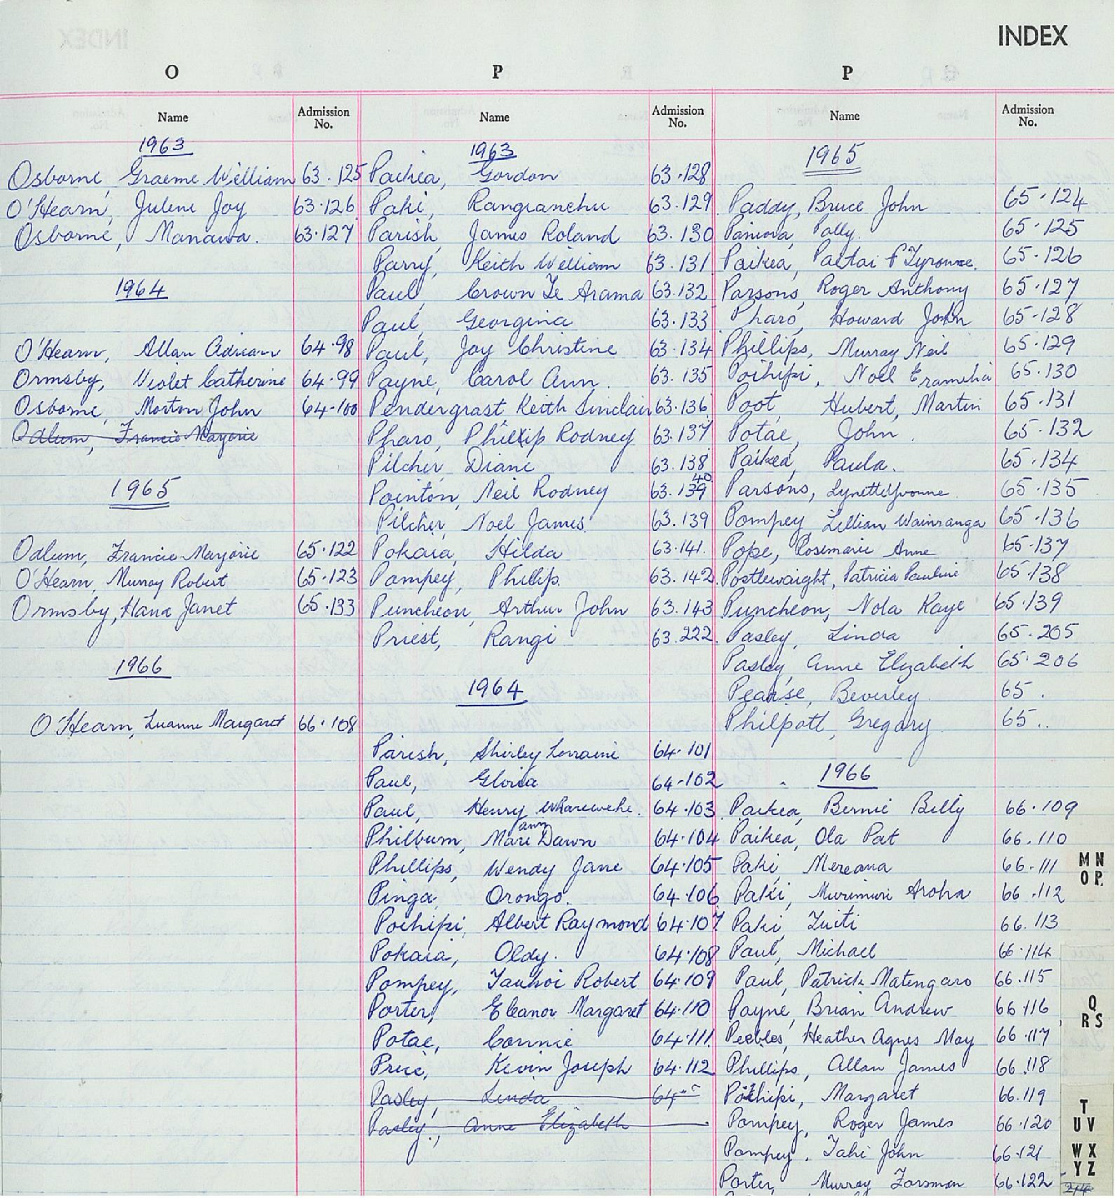 INDEX
O
Name
Admission No.
1963
Osborne, Graeme William 63.125
O'Hearn, Julene Joy 63.126
Osborne, Manawa. 63.127
1964
O'Hearn, Allan Adrian 64.98
Ormsby, Violet Catherine 64.99
Osborne, Morton John 64.100
Odlum, Francis Marjorie
1965
Odlum, Francis Marjorie 65.122
O'Hearn Murray Robert 65.123
Ormsby, Hana Janet 65.133
1966
O'Hearn, Luanne Margaret 66.108
P
Name
Admission No.
1963
Paikea, Gordon 63.128
Paki, 63.129
Parish, James Roland 63.130
Parry, Keith William 63.131
Paul, Crown Te Arama 63.132
Paul, Georgina 63.133
Paul, Joy Christine 63.134
Payne, Carol Ann. 63.135
Pendergrast Keith Sinclair 63.136
Pharo, Phillip Rodney 63.137
Pilcher Diane 63.138
Pointon, Neil Rodney 63.139 40
Pilcher, Noel James 63.139
Pokaia, Hilda 63.141.
Pompey, Phillip 63.142
Puncheon, Arthur John 63.143
Priest, Rangi 63.222
1964
Parish, Shirley Lorraine 64.101
Paul, Gloria 64.102
Paul, Henry Wharewehe. 64.103
Philburn, Mare Ann Dawn 64.104
Phillips, Wendy Jane 64.105
Pinga, Orongo. 64.106
Poihipi, Albert Raymond 64.107
Pokaia, Oldy. 64.108
Pompey, Tauhoi Robert 64.109
Porter, Eleanor Margaret 64.110
Potae, Connie 64.111
Price, Kevin Joseph 64.112
Pasley, Linda 64
Pasley, Anne Elizabeth
P
Name
Admission No.
1965
Paddy, Bruce John 65.124
Paniora, Polly. 65.125
Paikea, 65.126
Parsons, Roger Anthony 65.127
Pharo, Howard John 65.128
Phillips, Murray Neil 65.129
Poihipi, Noel 65.130
Poot Hubert, Martin 65.131
Potae, John 65.132
Paikea, Paula. 65.134
Parsons, Lynette Yvonne 65.135
Pompey, Lillian Wairanga 65.136
Pope, Rosemarie Anne 65.137
Postlewaight, Patricia Pauline 65.138
Puncheon, Nola Kaye 65.139
Pasley, Linda 65.205
Pasley Anne Elizabeth 65.206
Pearse, Beverley 65.
Philpott, Gregory 65..
1966
Paikea, Bernie Billy 66.109
Paikea, Ola Pat 66.110
Paki Mereana 66.111
Paki, Murimuri Aroha 66.112
Paki Tuiti 66.113
Paul, Michael 66.114
Paul, Patrick Matengaro 66.115
Payne, Brian Andrew 66.116
Peebles, Heather Agnes May 66.117
Phillips, Allan James 66.118
Poihipi, Margaret 66.119
Pompey, Roger James 66.120
Pompey, Tahi John 66.121
Porter, Murray Forsman 66.122
MN
OP.
Q
RS
T
UV
WX
YZ